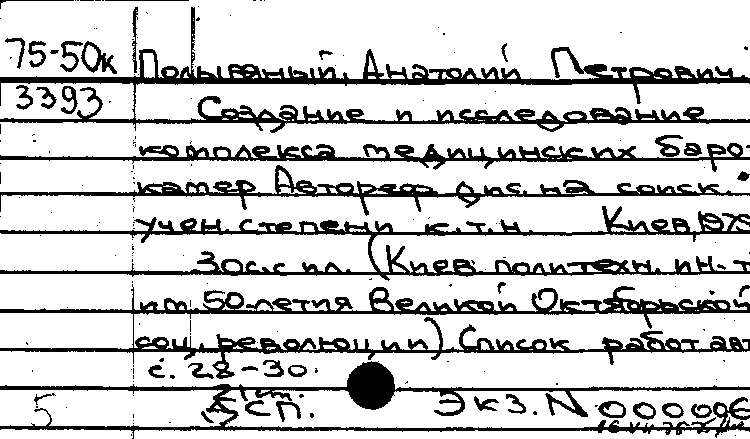 75-50к Полывяный, Анатолий Петрович.
3393 Создание и исследование
комплекса медицинских баро-
камер Автореф дис. на соиск.
учен. степени к.т.н. Киев, 1975
30с. с ил. (Киев. политехн. ин-т
им. 50-летия Великой Октябрьской
соц. революции). Список работ авт
с. 28-30.
5 ДСП. Экз. N 000006